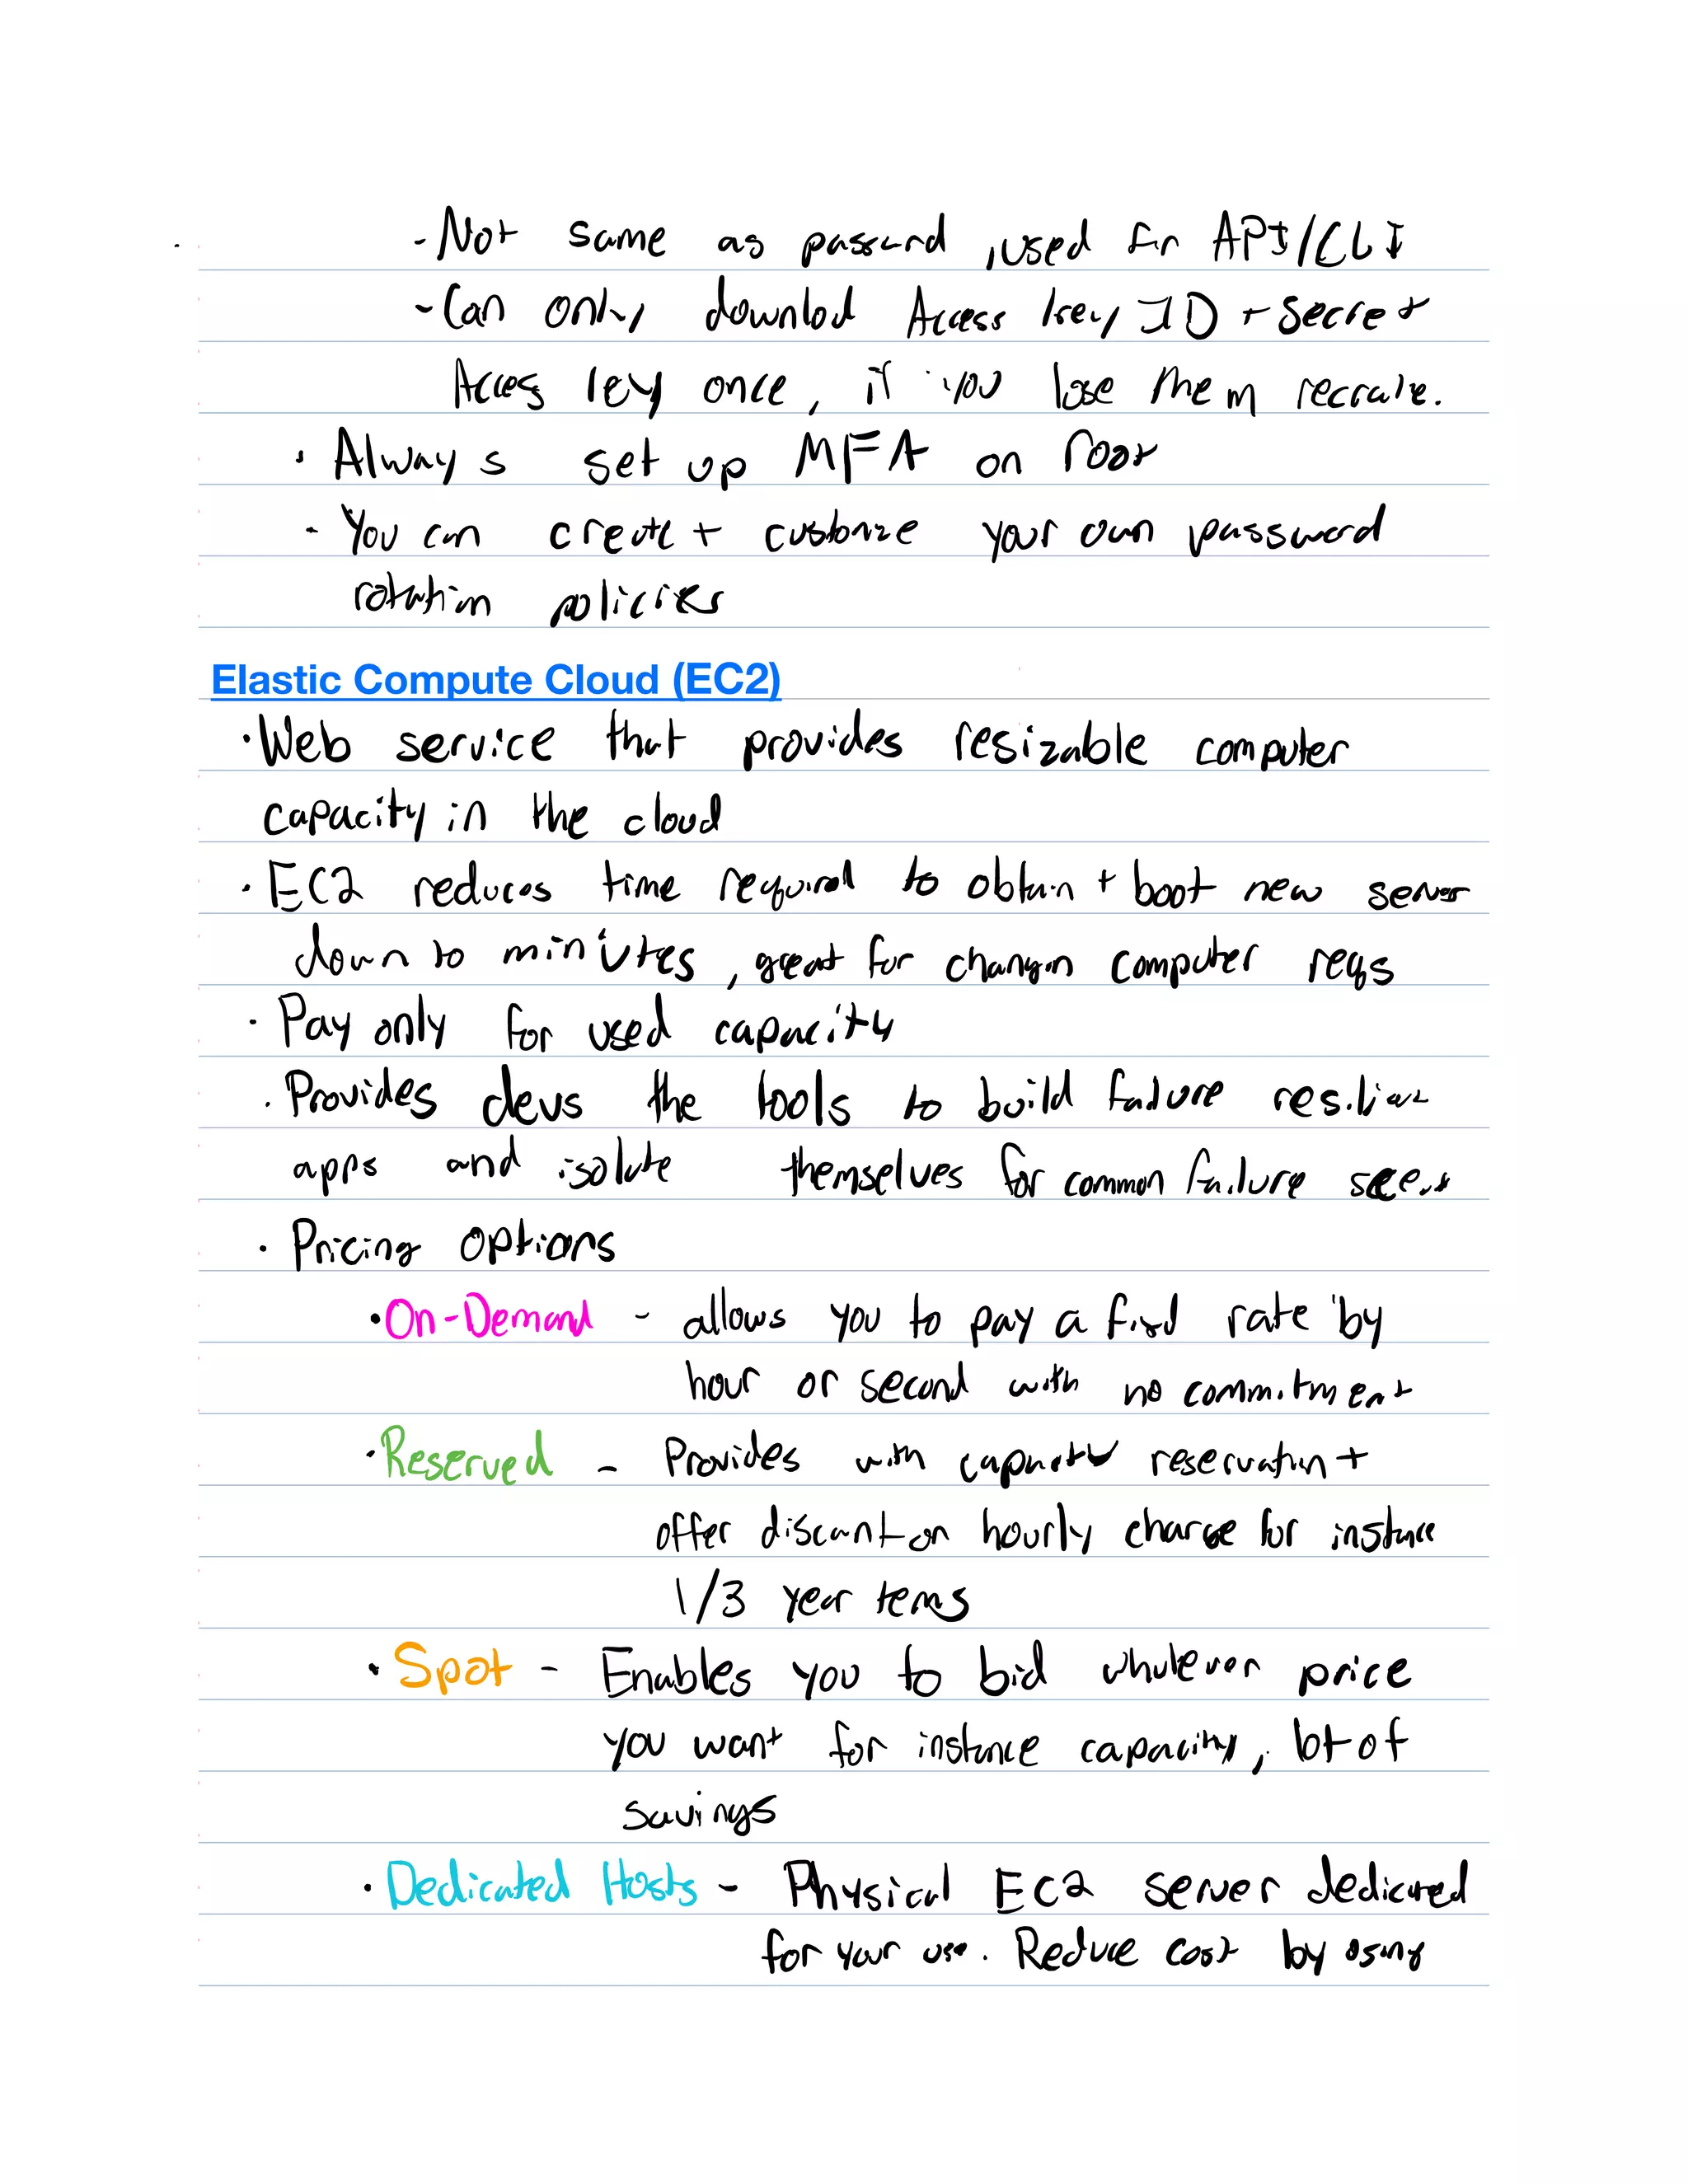 - Not same as password, used for API/CLI
- Can only downlod Access key ID + Secret
Acces key once, if you lose them recreate.
· Always set up MFA on root
· You can create + customize your own password
rotation policies
Elastic Compute Cloud (EC2)
· Web service that provides resizable computer
capacity in the cloud
· EC2 reduces time required to obtain + boot new server
down to minutes, great for changin computer reqs
· Pay only for used capacity
· Provides devs the tools to build failure resilient
apps and isolate themselves for common failure
· Pricing options
· On-Demand - allows you to pay a fixed rate by
hour or second with no commitment
· Reserved - Provides with capacity reservation +
offer discount on hourly charge for instance
1/3 year terms
· Spot - Enables you to bid whatever price
you want for instance capacity, lot of
savings
· Dedicated Hosts - Physical EC2 server dedicated
for your use. Reduce cost by using